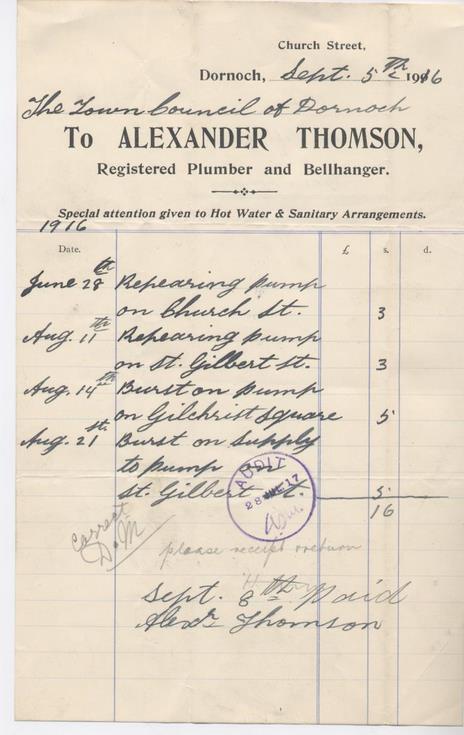 Church Street,
Dornoch, Sept. 5th 1916
The Town Council of Dornoch
To ALEXANDER THOMSON,
Registered Plumber and Bellhanger.
Special attention given to Hot Water & Sanitary Arrangements.
1916
Date. £ s. d.
June 28th Repearing pump
on Church St. 3
Aug. 11th Repearing pump
on St. Gilbert St. 3
Aug. 14th Burst on pump
on Gilchrist Square 5
Aug. 21st. Burst on Supply
to pump
St. Gilbert St. 5
16
AUDIT
28 JUL. 17
Correct
D. M
please receipt & return
Sept. 8th Paid
Alexr Thomson